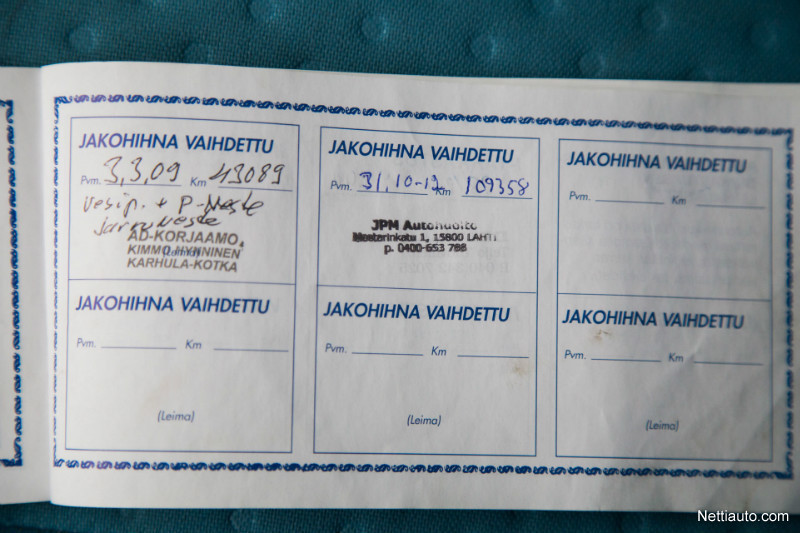 JAKOHIHNA VAIHDETTU
Pvm. 3,3,09 Km 43089
Vesip. + P-Neste
jarruneste
AD-KORJAAMO
KIMMO HYNNINEN
(Leima)
KARHULA-KOTKA
JAKOHIHNA VAIHDETTU
Pvm. 31,10-12 Km 109358
JPM Autohuolto
Mestarinkatu 1, 15800 LAHTI
p. 0400-653 788
JAKOHIHNA VAIHDETTU
Pvm. Km
JAKOHIHNA VAIHDETTU
Pvm. Km
(Leima)
JAKOHIHNA VAIHDETTU
Pvm. Km
(Leima)
JAKOHIHNA VAIHDETTU
Pvm. Km
(Leima)
Nettiauto.com